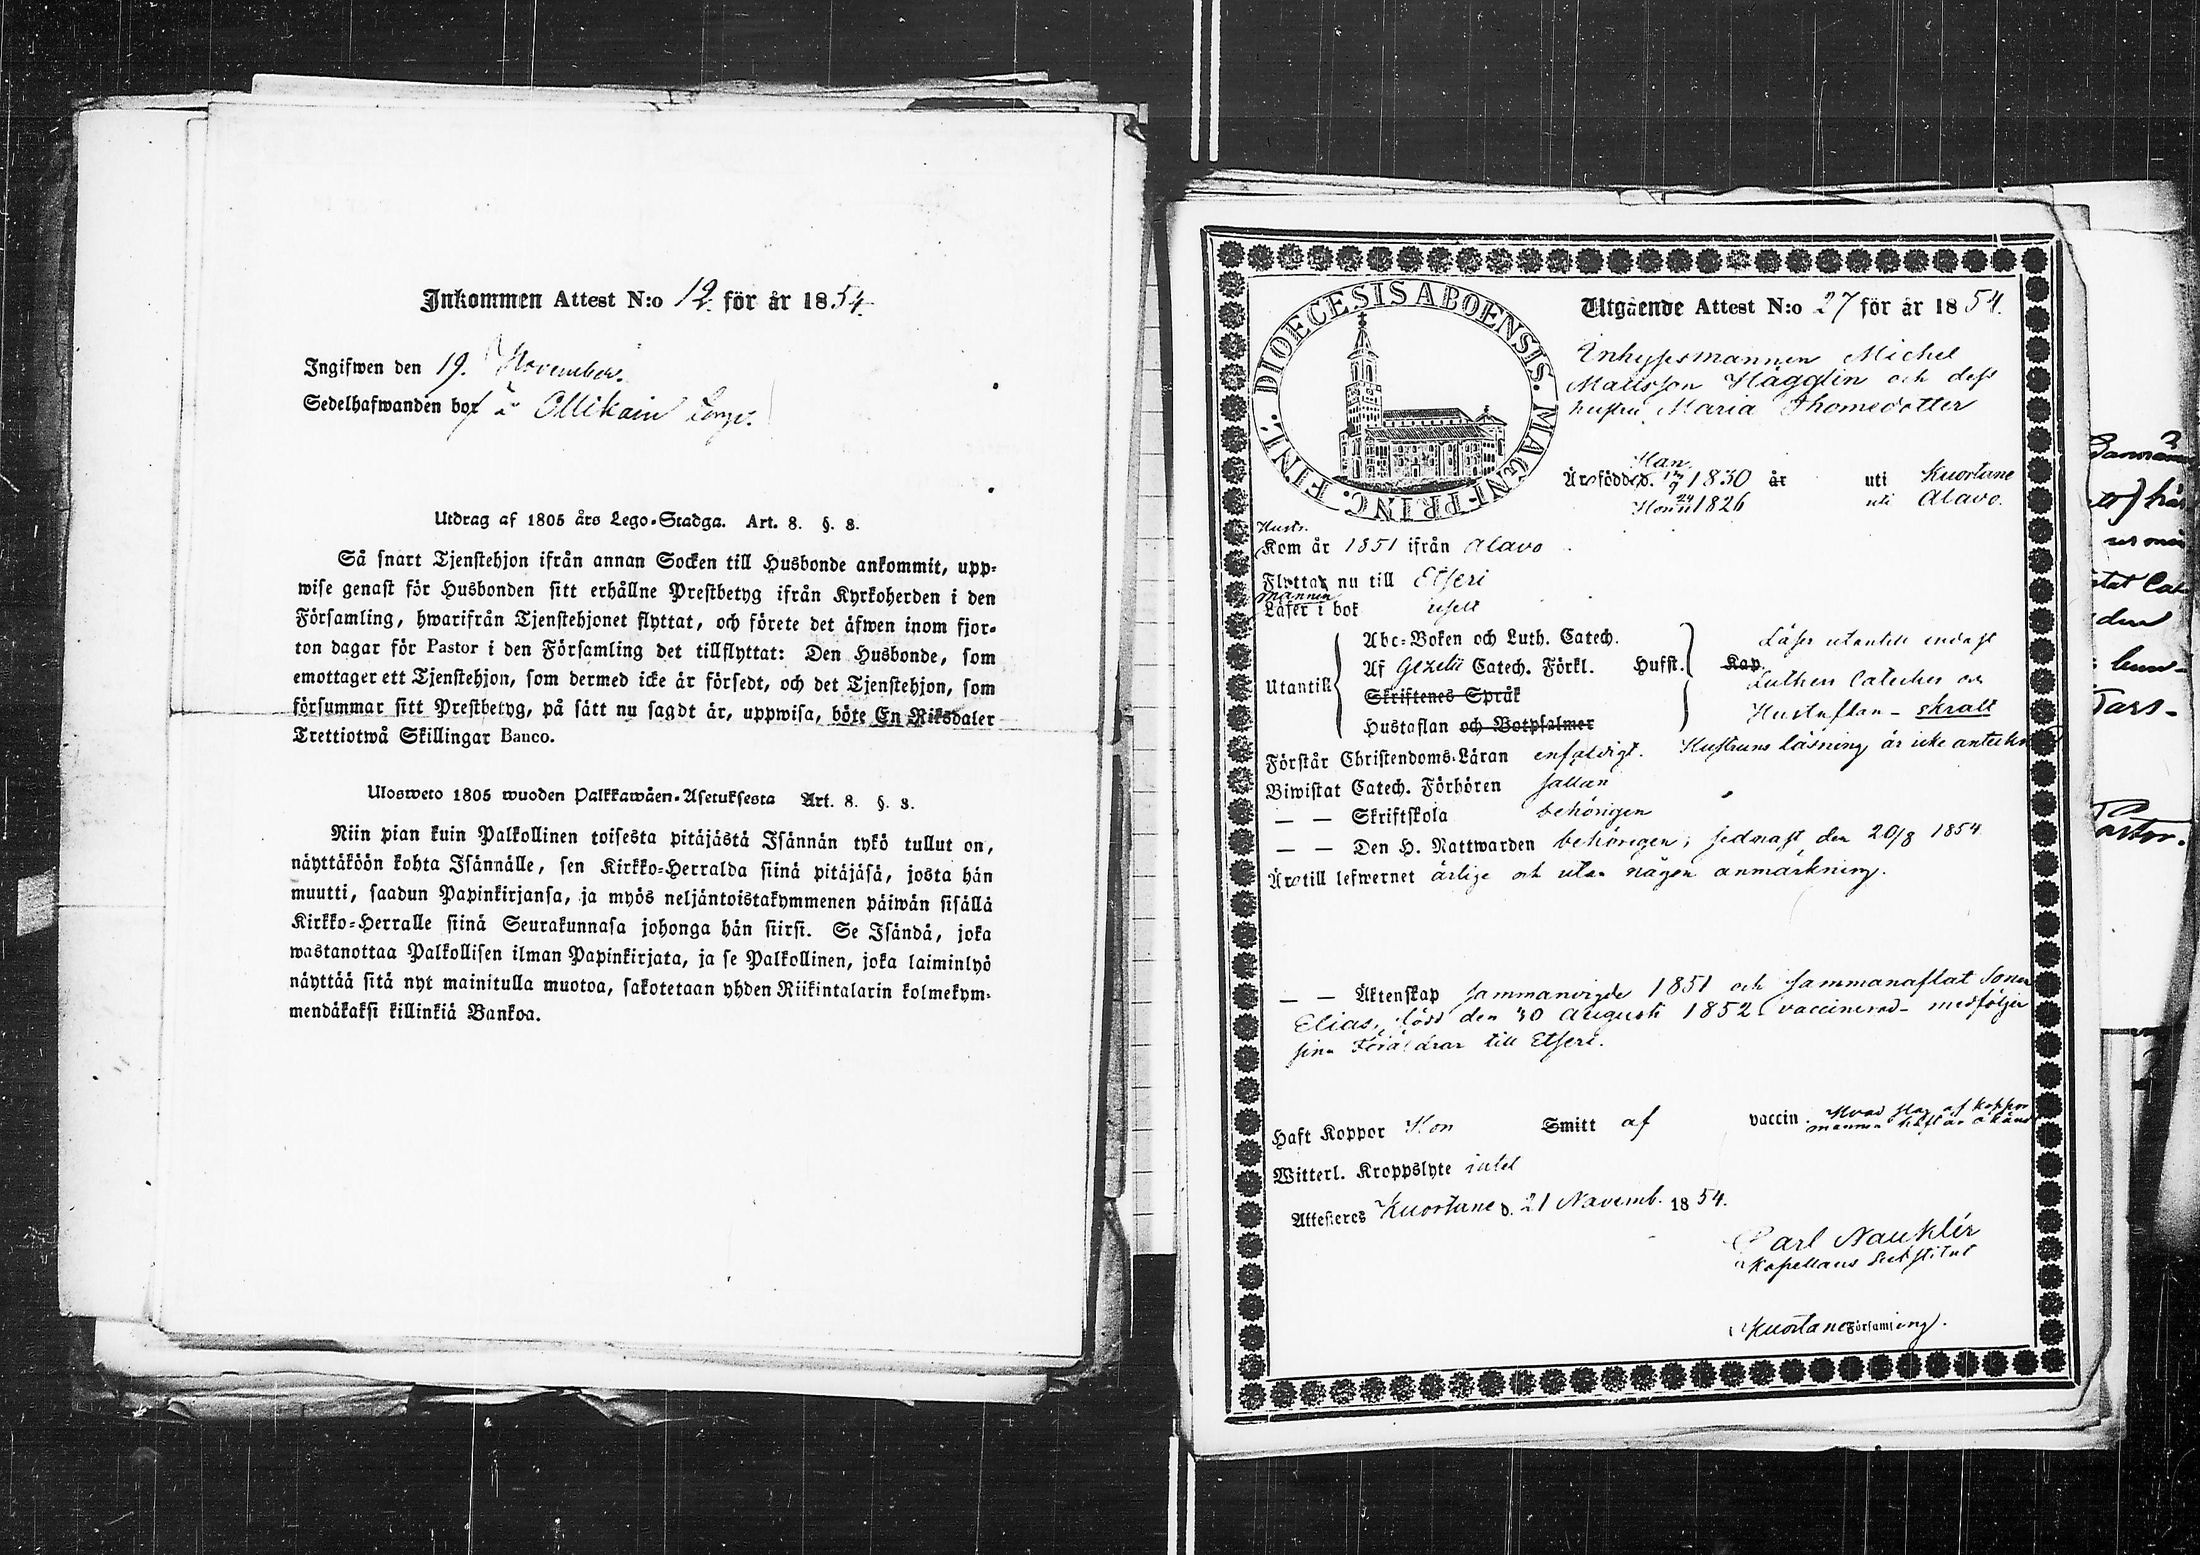 Inkommen Attest N:o 12. för år 1854.
Ingifwen den 19. November.
Sedelhafwanden bor å Ollikain
Utdrag af 1805 års Lego-Stadga. Art. 8. §. 3.
Så snart Tjenstehjon ifrån annan Socken till Husbonde ankommit, upp-
wise genast för Husbonden sitt erhållne Prestbetyg ifrån Kyrkoherden i den
Församling, hwarifrån Tjenstehjonet flyttat, och förete det äfwen inom fjor-
ton dagar för Pastor i den Församling det tillflyttat: Den Husbonde, som
emottager ett Tjenstehjon, som dermed icke är försedt, och det Tjenstehjon, som
försummar sitt Prestbetyg, på sätt nu sagdt är, uppwisa, böte En Riksdaler
Trettiotwå Skillingar Banco.
Ulosweto 1805 wuoden Palkkawäen-Asetuksesta Art. 8. §. 3.
Niin pian kuin Palkollinen toisesta pitäjästä Isännän tykö tullut on,
näyttäköön kohta Isännälle, sen Kirkko-Herralda siinä pitäjäsä, josta hän
muutti, saadun Papinkirjansa, ja myös neljäntoistakymmenen päiwän sisällä
Kirkko-Herralle siinä Seurakunnasa johonga hän siirsi. Se Isändä, joka
wastanottaa Palkollisen ilman Papinkirjata, ja se Palkollinen, joka laiminlyö
näyttää sitä nyt mainitulla muotoa, sakotetaan yhden Riikintalarin kolmekym-
mendäkaksi killinkiä Bankoa.
DIOECESIS ABOENSIS. MAGNI PRINC. FINL.
Utgående Attest N:o 27 för år 1854.
Inhysesmannen Michel
Mattsson Hägglin och dess
hustru Maria Thomedotter
Han
Är född d. 17/9 1830 år uti Kuortane
Hon 24/11 1826 uti Alavo.
Hustr.
Kom år 1851 ifrån Alavo
Flyttar nu till Etseri
mannen
Läser i bok uselt
Abc-Boken och Luth. Catech. Läser utantill endast
Utantill Af Gezelii Catech. Förkl. Husst. Kap.
Luthers Cateches och
Skriftenes Språk
Hustaflan - skralt
Hustaflan och Botpsalmer
Förstår Christendoms-Läran enfaldigt. Hustruns läsning är icke anteckn
Biwistat Catech. Förhören sällan
— — Skriftskola behörigen
— — Den H. Nattwarden behörigen, sednast den 20/8 1854
Är till lefwernet ärlige och utan någon anmärkning.
— — Äktenskap sammanvigde 1851 och sammanaflat Sonen
Elias, född den 30 Augusti 1852 vaccinerad - medföljer
sina Föräldrar till Etseri.
Haft Koppor Hon Smitt af vaccin. Hvad slag af koppor
mannen haft är okändt
Witterl. Kroppslyte intet
Attesteres Kuortane d. 21 Novemb. 1854.
Carl Nauklér
Kapellans Substitut
Kuortane Församling.